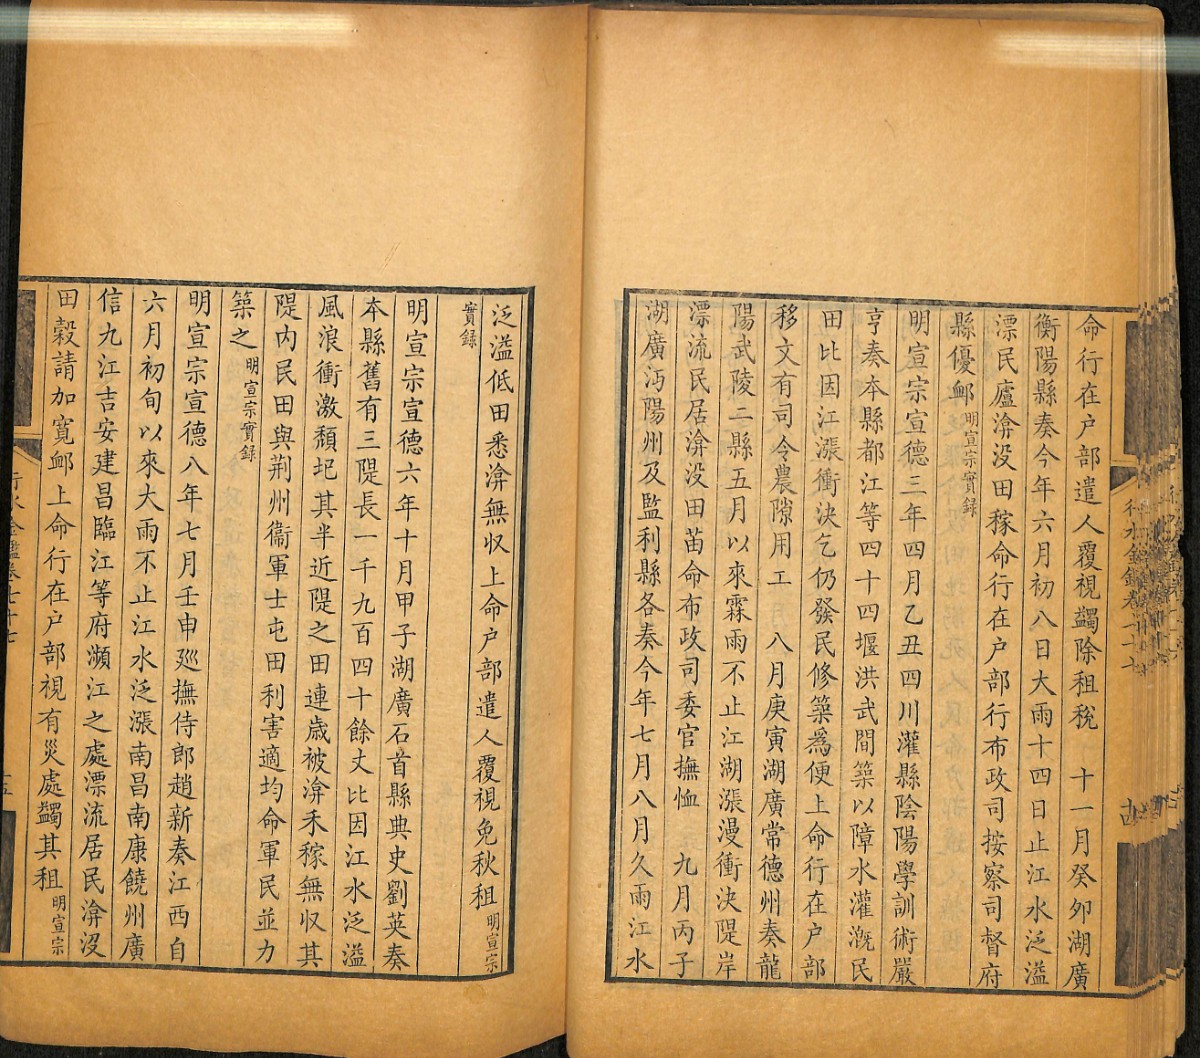 命行在户部遣人覆視蠲除租稅　十一月癸夘湖廣
衡陽縣奏今年六月初八日大雨十四日止江水泛溢
漂民廬渰没田稼命行在户部行布政司按察司督府
縣優卹明宣宗實録
明宣宗宣德三年四月乙丑四川灌縣陰陽學訓術嚴
亨奏本縣都江等四十四堰洪武間築以障水灌漑民
田比因江漲衝決乞仍發民修築爲便上命行在户部
移文有司令農隙用工　八月庚寅湖廣常德州奏龍
陽武陵二縣五月以來霖雨不止江湖漲漫衝決隄岸
漂流民居渰没田苗命布政司委官撫恤　九月丙子
湖廣沔陽州及監利縣各奏今年七月八月久雨江水
泛溢低田悉渰無収上命户部遣人覆視免秋租明宣宗
實録
明宣宗宣德六年十月甲子湖廣石首縣典史劉英奏
本縣舊有三隄長一千九百四十餘丈比因江水泛溢
風浪衝激頽圮其半近隄之田連歲被渰禾稼無収其
隄内民田與荆州衞軍士屯田利害適均命軍民並力
築之明宣宗實録
明宣宗宣德八年七月壬申廵撫侍郎趙新奏江西自
六月初旬以來大雨不止江水泛漲南昌南康饒州廣
信九江吉安建昌臨江等府瀕江之處漂流居民渰没
田穀請加寬卹上命行在户部視有災處蠲其租明宣宗
行水金鑑卷七十七